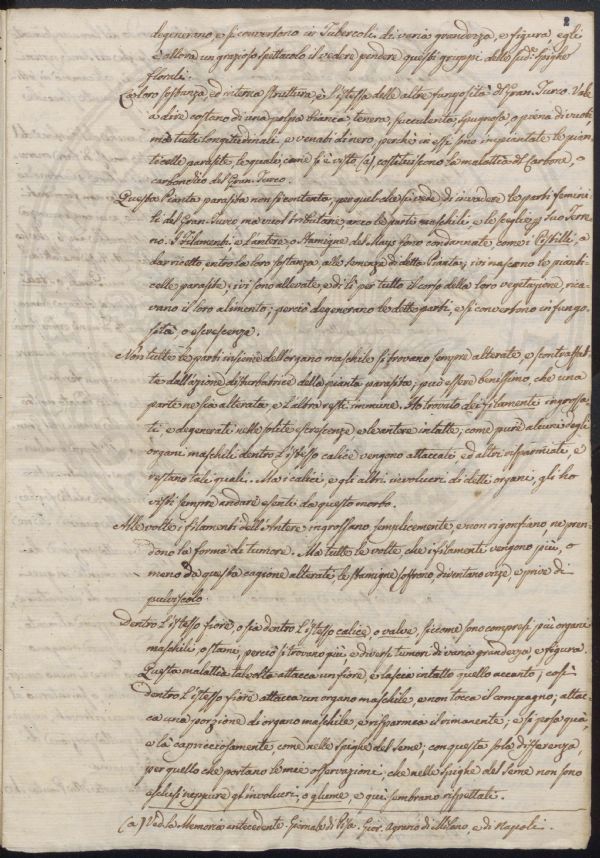 2
degenerano, e si convertono in Tubercoli di varia grandezza, e figura, egli
è allora un grazioso spettacolo il vedere pendere questi gruppi dalle sud.e Spighe
floride.
La loro sostanza, ed interna struttura, è l'istessa delle altre fungosità del Gran-Turco. Vale
a dire costano di una polpa bianca, tenera, succulenta, spugnosa o piena di vuoti
mà tutti longitudinali, e venati di nero, perchè in essi sono impiantate le pian-
ticelle parasite, le quali, come si è visto (a), costituiscono la malattia del Carbone, o
carboncello del Gran-Turco.
Questa Pianta parasita non si contenta, per quel che si vede di invadere le parti femini-
li del Gran-Turco ma vuol tributarie anco le parti maschili, e le sceglie p suo Terre-
no. I Filamenti, e l'antere, o Stamigne del Mays sono condannate come i Pistilli, a
dar ricetto entro la loro sostanza alle semenze di detta Pianta; ivi nascono le pianti-
celle parasite; ivi sono allevate, e di lì per tutto il corso della loro vegetazione rica-
vano il loro alimento; perciò degenerano le dette parti, e si convertono in fungo-
sità o escrescenze.
Non tutte le parti insieme dell'organo maschile si trovano sempre alterate, e contraffat-
te dall'azione disturbatrice della pianta parasita; può essere benissimo, che una
parte ne sia alterata, e l'altra resti immune. Ho trovato dei filamenti ingrossa-
ti, e degenerati nelle solite escrescenze e le antere intatte, come pure alcuni degli
organi maschili dentro l'istesso calice vengono attaccati ed altri risparmiati, e
restano tali quali. Ma i calici, e gli altri involucri di detti organi, gli ho
visti sempre andare esenti da questo morbo.
Alle volte i filamenti dell'Antere ingrossano semplicemente e non rigonfiano, ne pren-
dono la forma di tumore. Ma tutte le volte, che i filamenti vengono più, o
meno da questa cagione alterati le Stamigne soffrono, diventano vizze e prive di
pulviscolo.
Dentro l'istesso fiore, o sia dentro l'istesso calice, o valve, siccome sono compresi più organi
maschili, o stami, perciò si trovano più, e diversi tumori di varia grandezza, e figura.
Questa malattia talvolta attacca un fiore, e lascia intatto quello accanto; così
dentro l'istesso fiore attacca un organo maschile, e non tocca il compagno; attac-
ca una porzione di organo maschile e risparmia il rimanente; e si posa quà,
e là capricciosamente come nelle spighe del seme; con questa sola differenza,
per quello che portano le mie osservazioni, che nelle spighe del seme non sono
esclusi neppure gl'involucri, o glume, e quì sembrano rispettati.
(a) Ved. la Memoria antecedente Giornale di Pisa. Gior. Agrario di Milano, e di Napoli.